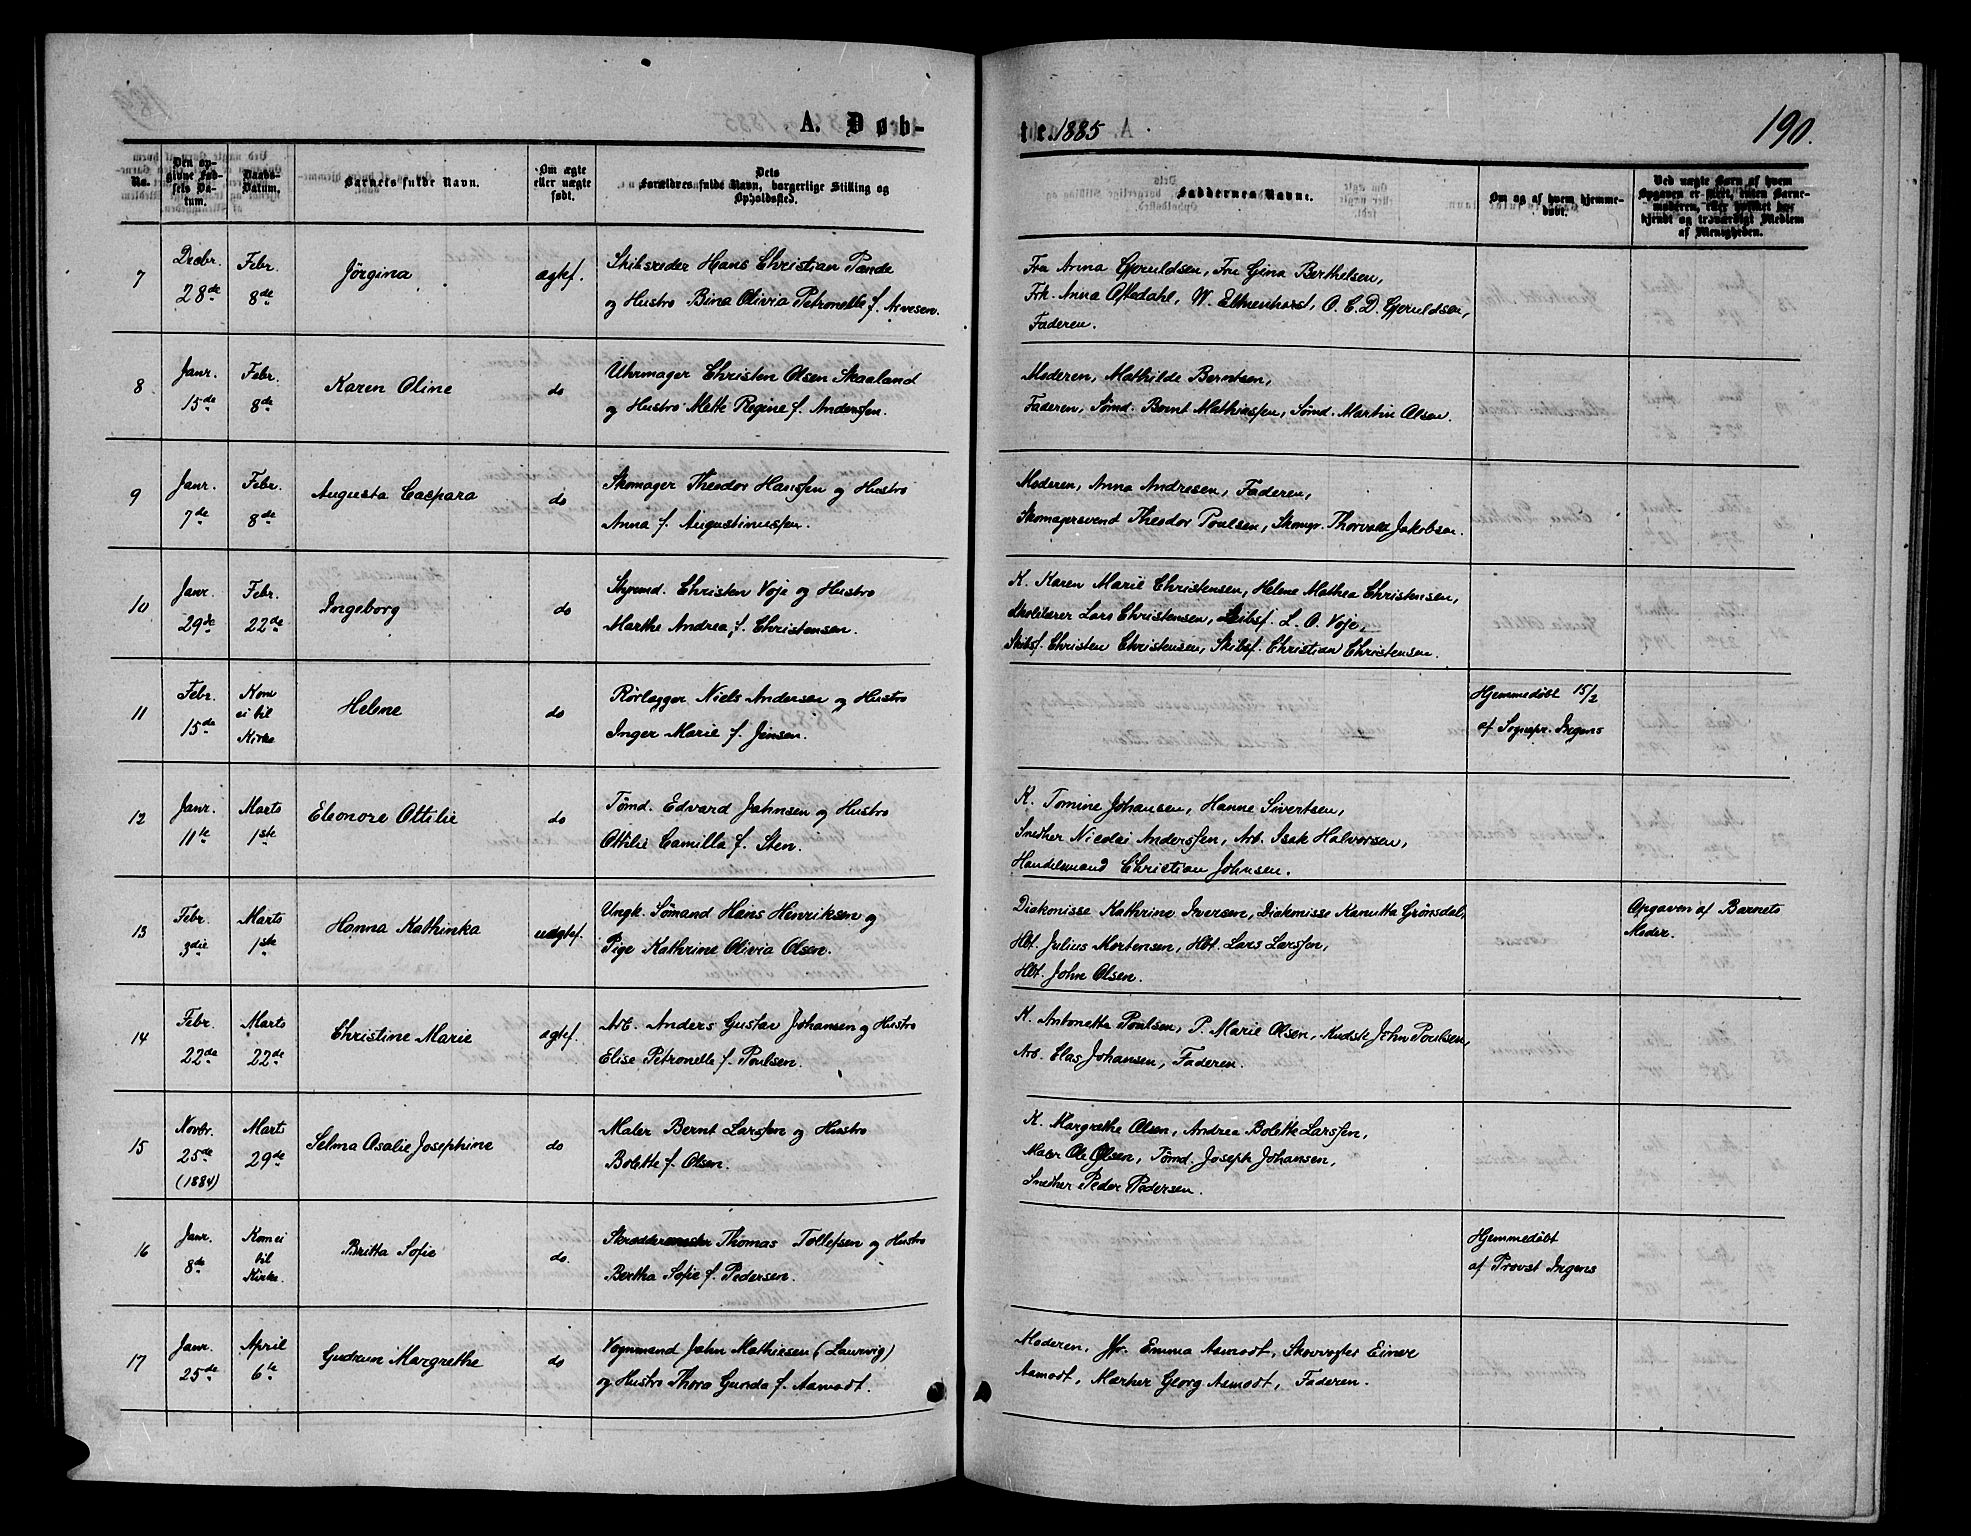 A. Døb-
te. 1885
190.
No.
Den opgivne Fødsels Datum.
Daabs-Datum.
Barnets fulde Navn.
Om ægte eller uægte født.
Dets Forældres fulde Navn, borgerlige Stilling og Opholdssted.
Faddernes Navne.
Om og af hvem hjemmedøbt.
Ved uægte Børn af hvem Opgaven er skeet, enten Barnemoderen, eller hvilket her kjendt og troværdigt Medlem af Menigheden.
7
Decbr. 28de
Febr. 8de
Jørgina
ægtef.
Skibsreder Hans Christian Pande
og Hustro Bina Olivia Petronelle f. Arvesen.
Fru Anna Gjeruldsen, Fru Gina Berthelsen,
Frk. Anna Oftedahl, W. Eltmenhorst, O. C. D. Gjeruldsen,
Faderen.
8
Janr. 15de
Febr. 8de
Karen Oline
do
Uhrmager Christen Olsen Skaaland
og Hustro Mette Regine f. Anderssen.
Moderen, Mathilde Berntsen,
Faderen, Sømd. Bernt Mathiassen, Sømd. Martin Olsen.
9
Janr. 7de
Febr. 8de
Augusta Caspara
do
Skomager Theodor Hanssen og Hustro
Anna f. Augustinussen.
Moderen, Anna Andresen, Faderen,
Skomagersvend Theodor Poulsen, Skomgr. Thorvald Jakobsen.
10
Janr. 29de
Febr. 22de
Ingeborg
do
Styrmd. Christen Voje og Hustro
Marthe Andrea f. Christensen.
K. Karen Marie Christensen, Helene Mathea Christensen,
Skolelærer Lars Christensen, Skibsf. L. O. Voje,
Skibsf. Christen Christensen, Skibsf. Christian Christensen.
11
Febr. 15de
Kom ei til Kirke
Helene
do
Rørlægger Niels Andersen og Hustro
Inger Marie f. Jensen.
Hjemmedøbt 15/2
af Sognepr. Irgens
12
Janr. 11te
Marts 1ste
Eleonore Ottilie
do
Tømd. Edvard Jahnsen og Hustro
Ottilie Camilla f. Sten.
K. Tomine Johansen, Hanne Sivertsen,
Snedker Nicolai Anderssen, Arb. Isak Halvorsen,
Handelsmand Christian Johnsen.
13
Febr. 3die
Marts 1ste
Hanna Kathinka
uægtef.
Ungk. Sømand Hans Henriksen og
Pige Kathrine Olivia Olsen.
Diakonisse Kathrine Iversen, Diakonisse Kanutta Grønsdal,
Hbt. Julius Mortensen, Hbt. Lars Larssen,
Hbt. John Olsen.
Opgaven af Barnets
Moder.
14
Febr. 22de
Marts 22de
Christine Marie
ægtef.
Arb. Anders Gustav Johansen og Hustro
Elise Petronelle f. Poulsen.
K. Antonette Poulsen, P. Marie Olsen, Kudsk John Poulsen,
Arb. Elas Johansen, Faderen.
15
Novbr. 25de (1884)
Marts 29de
Selma Osalie Josephine
do
Maler Bernt Larssen og Hustro
Bolette f. Olsen.
K. Margrethe Olsen, Andrea Bolette Larssen,
Maler Ole Olsen, Tømd. Joseph Johansen,
Snedker Peder Pedersen.
16
Janr. 8de
Kom ei til Kirke.
Britta Sofie
do.
Skrædder Thomas Tollefsen og Hustro
Bertha Sofie f. Pedersen.
Hjemmedøbt
af Provst Irgens
17
Janr. 25de
April 6te
Gudrun Margrethe
do
Vognmand John Mathiesen (Laurvig)
og Hustro Thora Gunda f. Aamodt.
Moderen, Jfr. Emma Aamodt, Skovvogter Einar
Aamodt, Mærker Georg Aamodt, Faderen.